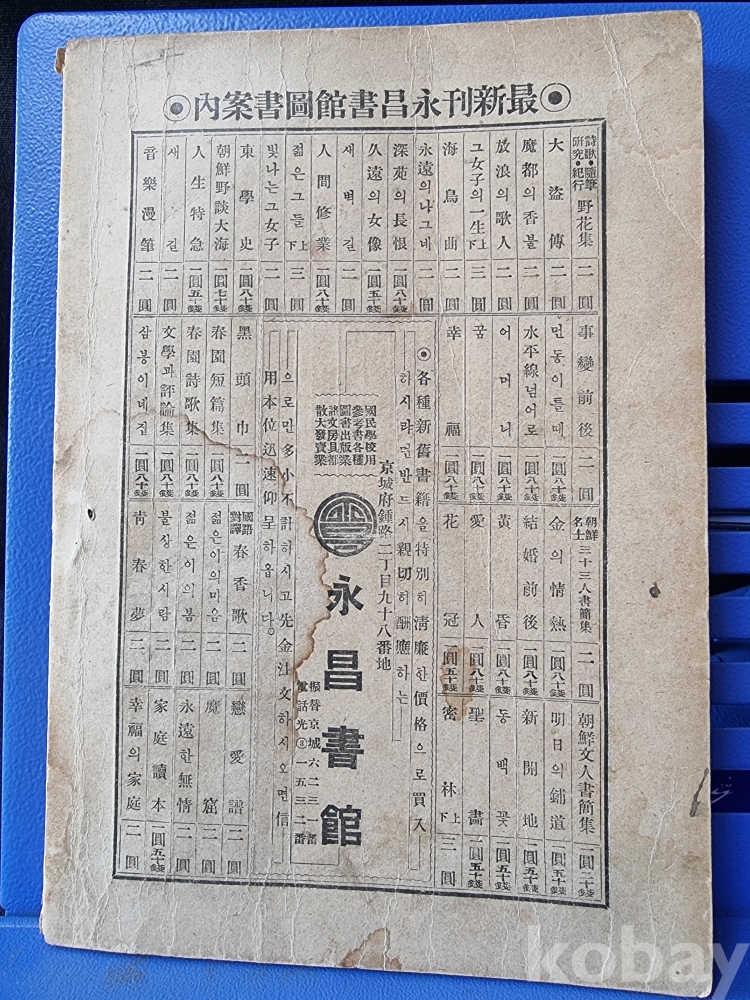 最新刊永昌書館圖書案內
詩歌・隨筆 研究・紀行 野花集 二圓
大盜傳 二圓
魔都의香불 二圓
放浪의歌人 二圓
그女子의一生 上下 三圓
海鳥曲 二圓
永遠의나그네 二圓
深苑의長恨 一圓八十錢
久遠의女像 一圓五十錢
새벽길 二圓
人間修業 一圓八十錢
젊은그들 上下 三圓
빛나는그女子 二圓
東學史 一圓八十錢
朝鮮野談大海 一圓七十錢
人生特急 一圓五十錢
새길 二圓
音樂漫筆 二圓
事變前後 二圓
먼동이틀때 一圓八十錢
水平線넘어로 一圓八十錢
어머니 一圓八十錢
꿈 一圓八十錢
幸福 一圓八十錢
黑頭巾 一圓
春園短篇集 一圓八十錢
春園詩歌集 一圓八十錢
文學과評論集 一圓八十錢
삼봉이네집 一圓八十錢
朝鮮名士 三十三人書簡集 二圓
金의情熱 一圓八十錢
結婚前後 一圓八十錢
黃昏 一圓八十錢
愛人 一圓八十錢
花冠 一圓五十錢
國語對譯 春香歌 二圓
젊은이의마음 二圓
젊은이의봄 二圓
불상한사람 二圓
靑春夢 二圓
朝鮮文人書簡集 一圓二十錢
明日의鋪道 一圓五十錢
新開地 一圓五十錢
동백꽃 一圓五十錢
聖畵 一圓五十錢
密林 上下 三圓
戀愛譜 二圓
魔窟 二圓
永遠한無情 二圓
家庭讀本 一圓五十錢
幸福의家庭 二圓
各種新舊書籍을特別히淸廉한價格으로買入
하시랴면반드시親切히酬應하는
國民學校用
參考書各種
圖書出版業
諸文房具部
散大發賣業
京城府鍾路二丁目九十八番地
永昌書館
振替京城六二三一番
電話光③一五三二番
으로만多小不計하시고先金注文하시오면信
用本位迅速仰呈하옵니다。
kobay